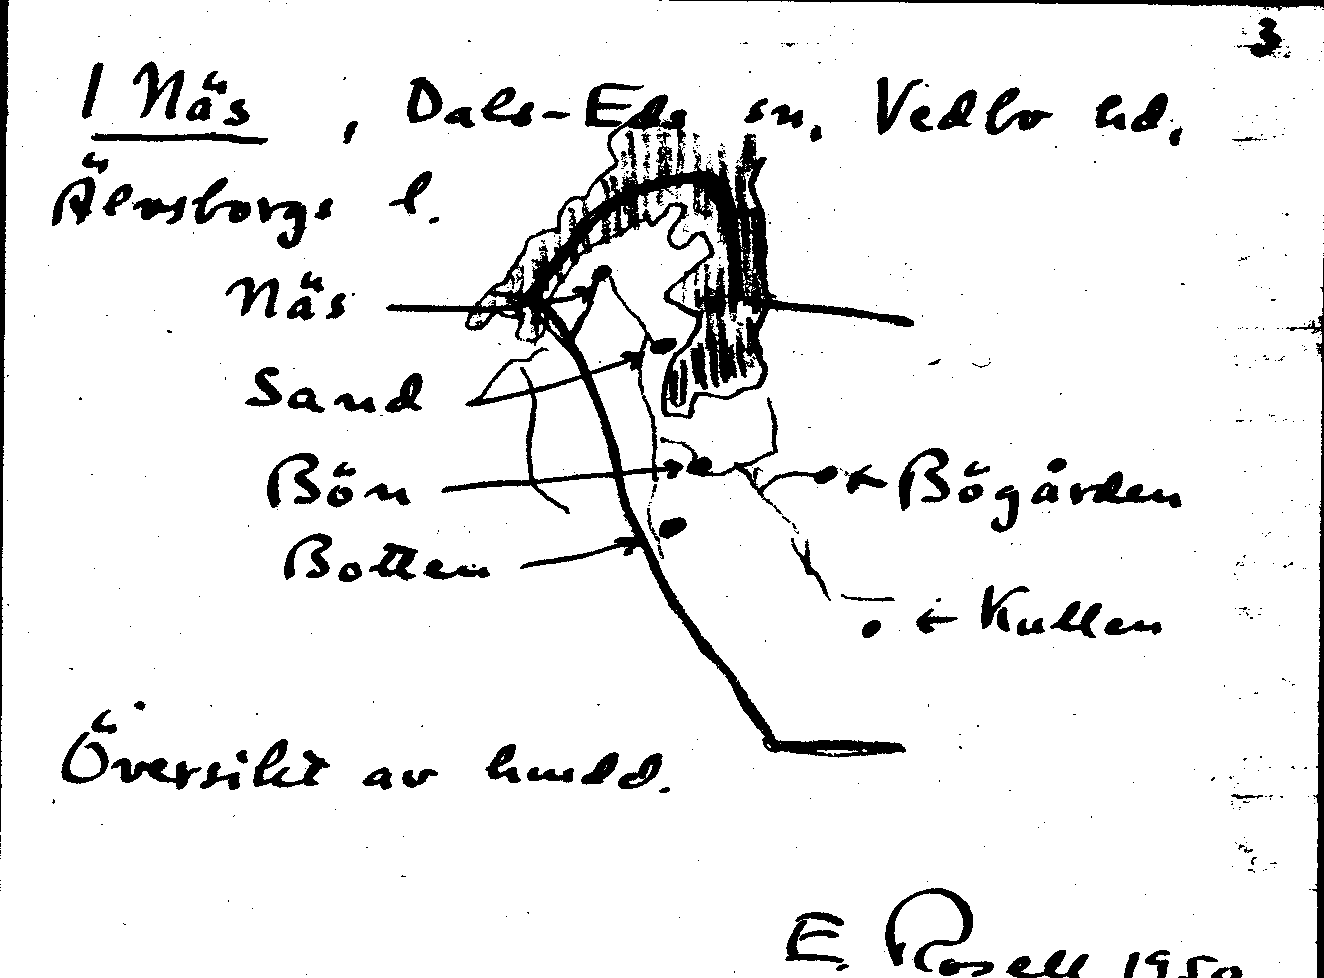 3
1 Näs, Dals-Eds sn, Vedbo hd,
Älvsborgs l.
Näs
Sand
Bön
← Bögården
Botten
← Kullen
Översikt av hmdd.
E. Rosell 1950